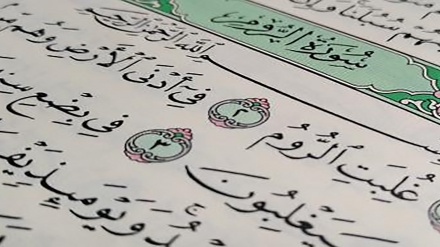 سُورَةُ الرُّومِ
اللَّهِ الرَّحْمَٰنِ الرَّحِيمِ
غُلِبَتِ الرُّومُ ٢ فِىٓ أَدْنَى الْأَرْضِ وَهُم
سَيَغْلِبُونَ ٣ فِى بِضْعِ
وَيَوْمَئِذٍ